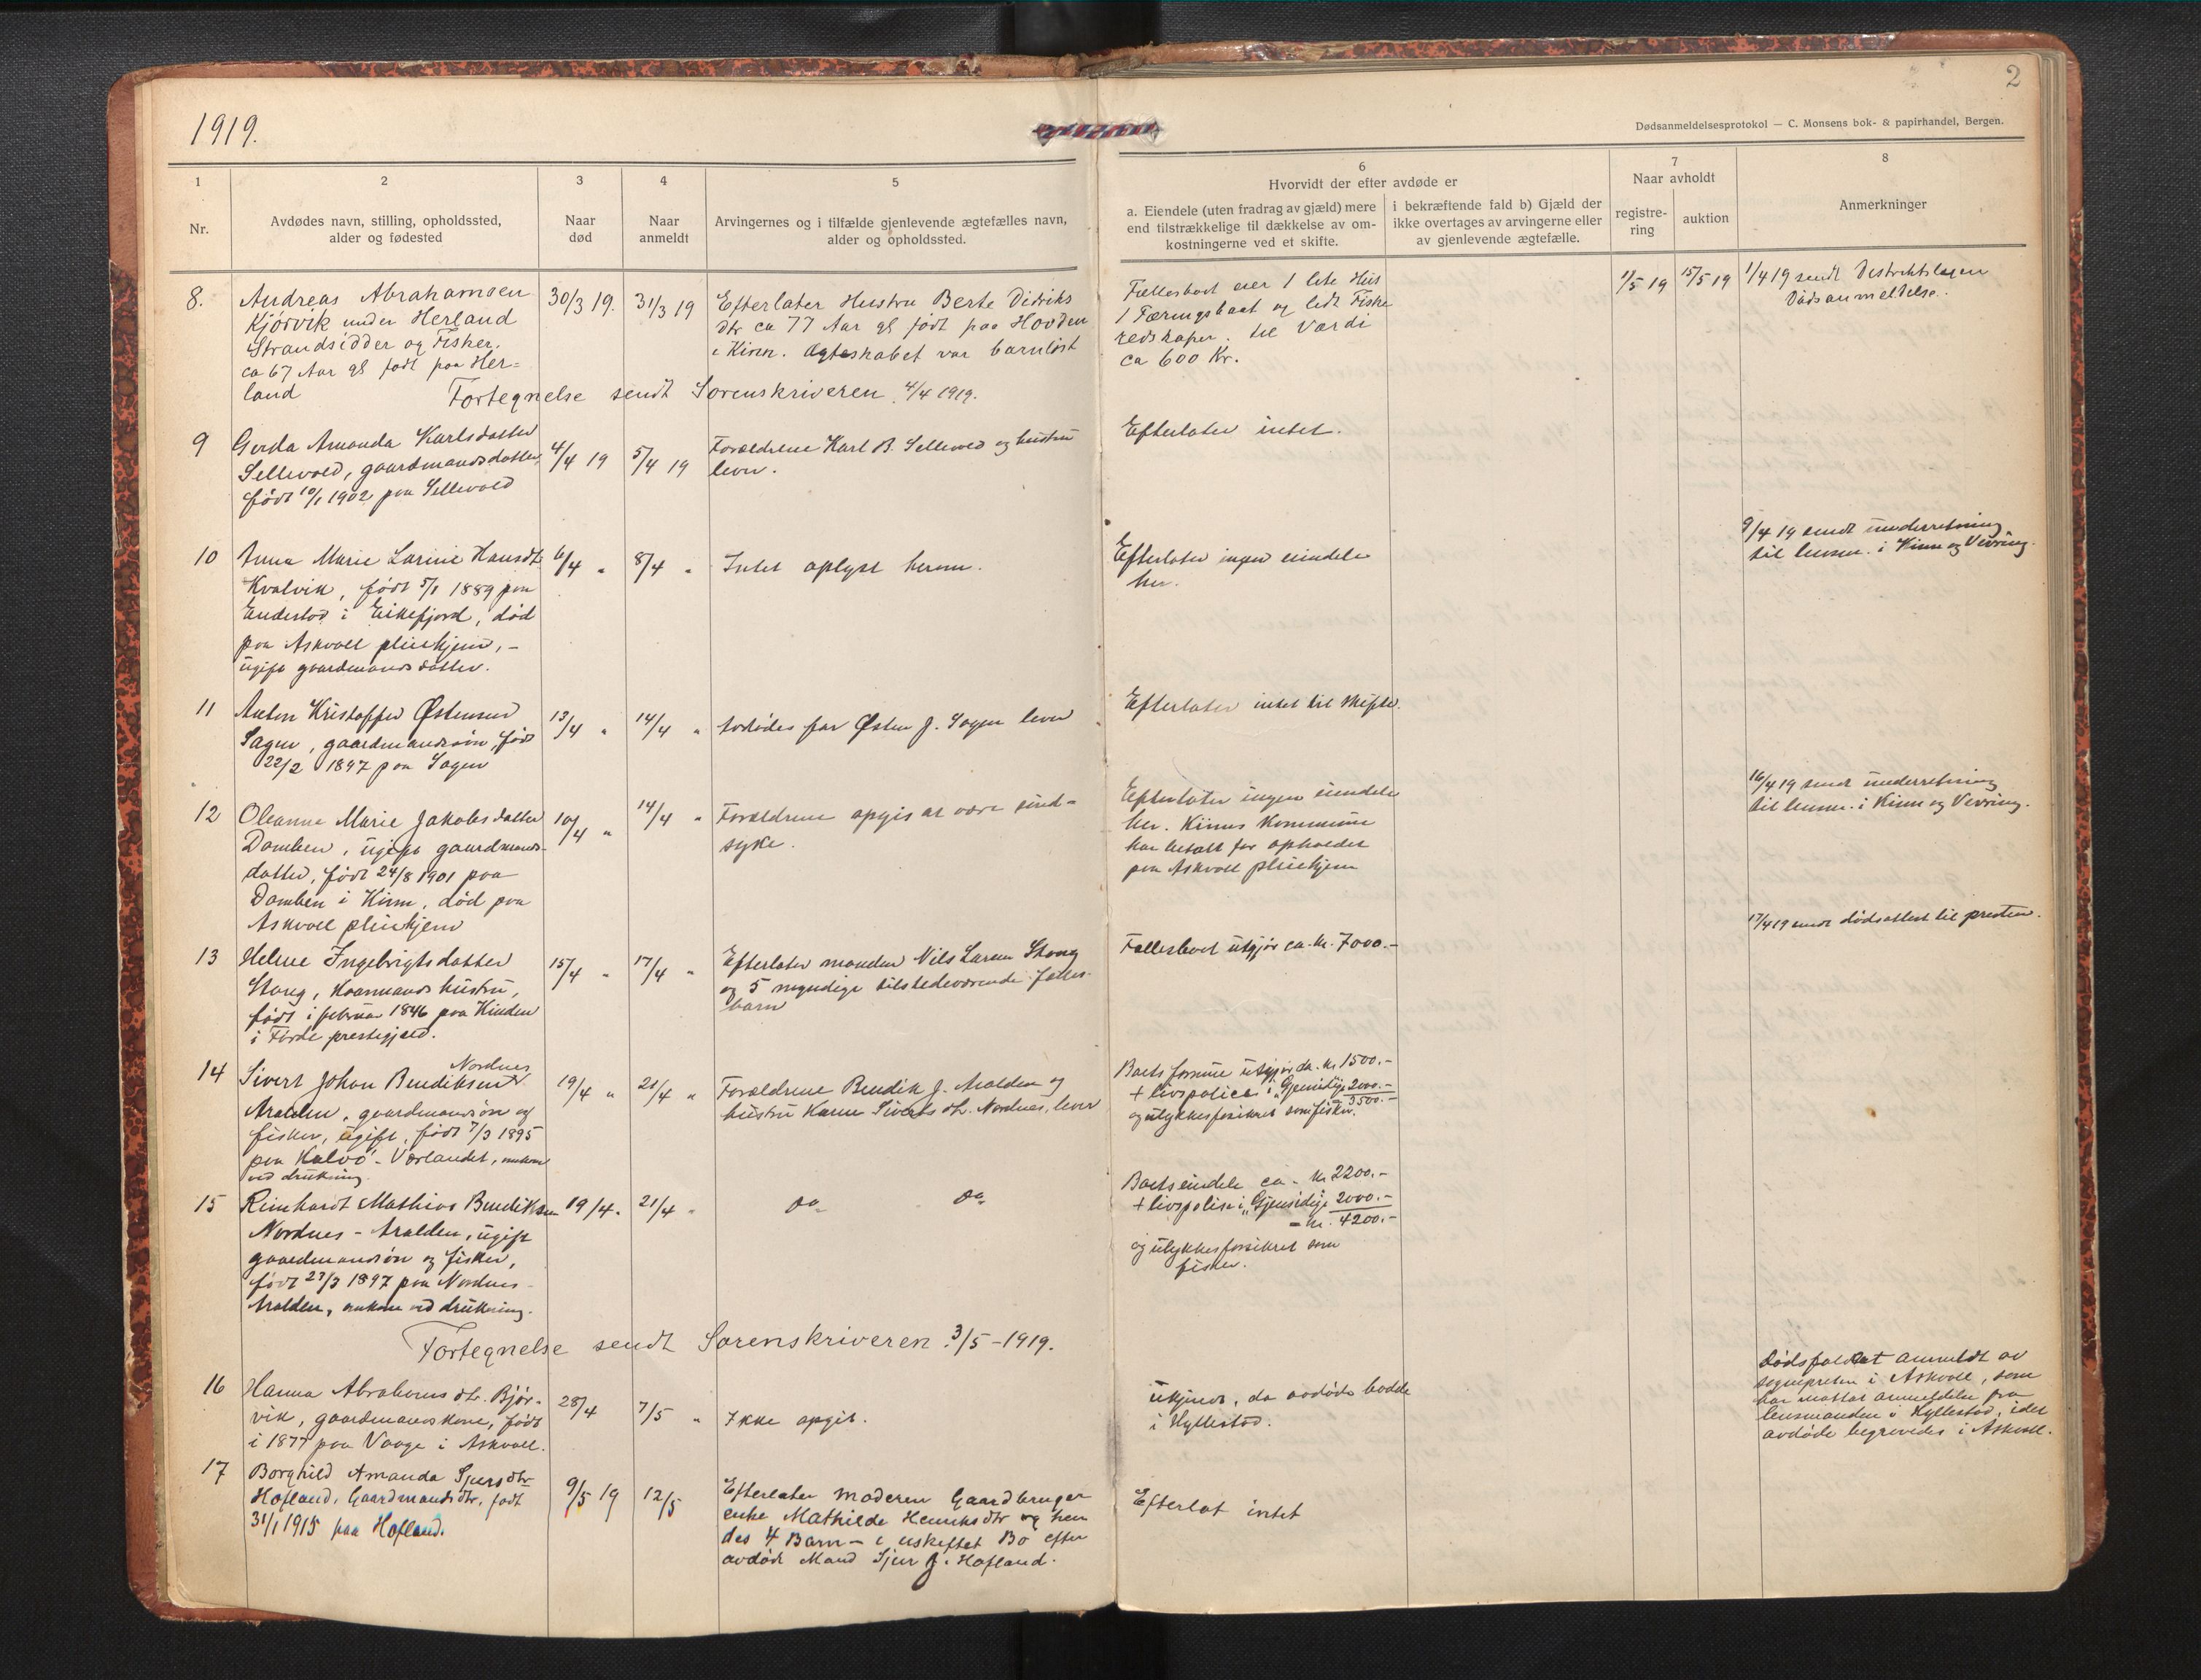 2
1919.
Dødsanmeldelsesprotokol — C. Monsens bok- & papirhandel, Bergen.
1
Nr.
2
Avdødes navn, stilling, opholdssted,
alder og fødested
3
Naar
død
4
Naar
anmeldt
5
Arvingernes og i tilfælde gjenlevende ægtefælles navn,
alder og opholdssted.
6
Hvorvidt der efter avdøde er
a. Eiendele (uten fradrag av gjæld) mere
end tilstrækkelige til dækkelse av om-
kostningerne ved et skifte.
i bekræftende fald b) Gjæld der
ikke overtages av arvingerne eller
av gjenlevende ægtefælle.
7
Naar avholdt
registre-
ring
auktion
8
Anmerkninger
8.
Andreas Abrahamsen
Kjørvik under Herland
Strandsidder og Fisker.
ca 67 Aar gl født paa Her=
land
30/3 19.
31/3 19
Efterlater Hustru Berte Didriks
dtr ca 77 Aar gl født paa Hovden
i Kinn. Ægteskabet var barnløst
Fællesboet eier 1 lite Hus
1 Færingsbaat og lidt Fiske
redskaper. til Værdi
ca 600 Kr.
1/5 19
15/5 19
1/4 19 sendt Distriktslægen
Dødsanmeldelse.
Fortegnelse sendt Sorenskriveren 4/4 1919.
9
Gerda Amanda Karlsdatter
Sellevold, gaardmandsdatter,
født 10/1 1902 paa Sellevold
4/4 19
5/4 19
Forældrene Karl B. Sellevold og hustru
lever.
Efterlater intet.
10
Anna Marie Larine Hansdtr
Kvalvik, født 5/1 1889 paa
Endestad i Eikefjord, død
paa Askvoll pleiehjem, -
ugift gaardmandsdatter.
6/4 "
8/4 "
Intet oplyst herom.
Efterlater ingen eiendele
her.
9/4 19 sendt underretning
til lensm. i Kinn og Vevring.
11
Anton Kristoffer Østensen
Sagen, gaardmandssøn, født
22/2 1897 paa Sagen
13/4 "
14/4 "
Avdødes far Østen J. Sagen lever
Efterlater intet til skifte.
12
Oleanna Marie Jakobsdatter
Domben, ugift gaardmands-
datter, født 24/8 1901 paa
Domben i Kinn, død paa
Askvoll pleiehjem
10/4 "
14/4 "
Forældrene opgis at være sind-
syke.
Efterlater ingen eiendele
her. Kinns Kommune
har betalt for opholdet
paa Askvoll pleiehjem
16/4 19 sendt underretning
til lensm. i Kinn og Vevring.
13
Helene Ingebrigtsdatter
Stong, Kaarmands hustru,
født i februar 1846 paa Hinden
i Førde prestegjeld.
15/4 "
17/4 "
Efterlater manden Nils Larsen Stong
og 5 myndige tilstedeværende fælles-
barn
Fællesboet utgjør ca. kr. 7000.-
17/4 19 sendt dødsattest til presten.
14
Nordnes
Sivert Johan Bendiksen
Aralden, gaardmandssøn og
fisker, ugift, født 7/3 1895
paa Kalvö - Værlandet, omkom
ved drukning.
19/4 "
21/4 "
Forældrene Bendik J. Aralden og
hustru Karen Siverts dtr. Nordnes, lever
Boets formue utgjør ca. kr 1500.-
+ livspolice i "Gjensidige 2000.-
3500.-
og ulykkesforsikret som fisker.
15
Reinhardt Mathias Bendiksen
Nordnes - Aralden, ugift
gaardmandssøn og fisker,
født 27/3 1897 paa Nordnes
Aralden, omkom ved drukning.
19/4 "
21/4 "
do
do
Boets eiendele ca - kr 2200.-
+ livspolise i "Gjensidige 2000.-
= kr. 4200.-
og ulykkesforsikret som
fisker.
Fortegnelse sendt Sorenskriveren 3/5-1919.
16
Hanna Abrahams dtr. Bjør-
vik, gaardmandskone, født
i 1877 paa Vaage i Askvoll.
28/4
7/5 "
Ikke opgit.
Ukjendt, da avdøde bodde
i Hyllestad.
Dødsfaldet anmeldt av
sognepresten i Askvoll, som
har mottat anmeldelse fra
lensmanden i Hyllestad, idet
avdøde begravedes i Askvoll.
17
Borghild Amanda Sjursdtr
Hofland, Gaardmandsdtr. født
31/1 1915 paa Hofland.
9/5 19
12/5
Efterlater Moderen Gaardbruger
enke Mathilde Henriksdtr og hen
des 4 Barn - i uskiftet Bo efter
avdøde Mand Sjur J. Hofland.
Efterlot intet